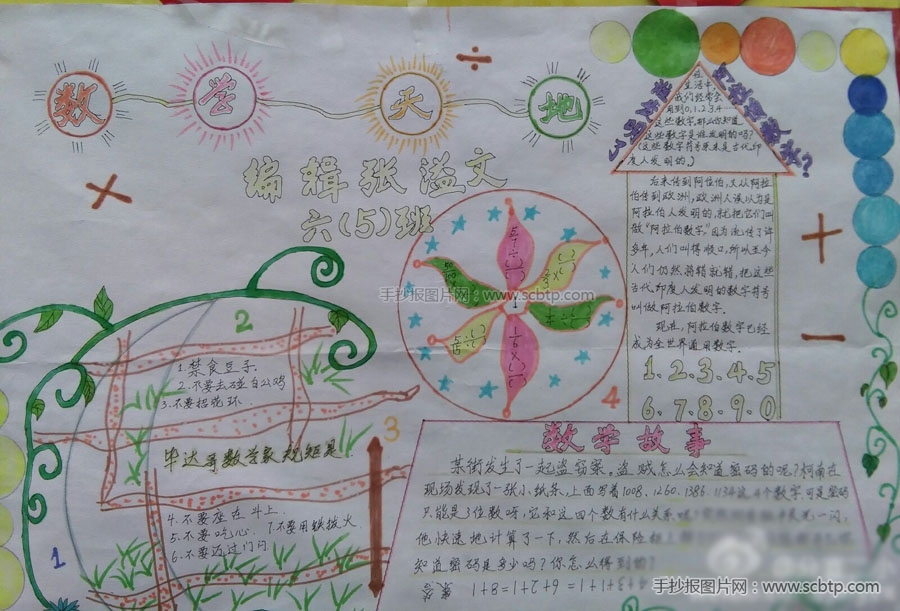 数学天地
编辑张溢文
六(5)班
手抄报图片网：www.scbtp.com
在
生活中，
我们经常会
用到0.1.2.3.4
这些数字，那么你知道
这些数字是谁发明的吗？
(这些数字符号原本是古代印
度人发明的，)
后来传到阿拉伯，又从阿拉
伯传到欧洲，欧洲人误以为是
阿拉伯人发明的，就把它们叫
做“阿拉伯数字”因为流传了许
多年，人们叫得顺口，所以至今
人们仍然将错就错，把这些
古代印度人发明的数字符号
叫做阿拉伯数字。
现在，阿拉伯数字已经
成为全世界通用数字。
1.2.3.4.5
6.7.8.9.0
2
1.禁食豆子
2.不要去碰白公鸡
3.不要招晓环
毕达哥数学家规矩是
4.不要座在斗上
5.不要吃心 7.不要用铁拔火
6.不要迈过门闩
1
3
4
数学故事
某街发生了一起盗窃案。盗贼怎么会知道密码的呢？柯南在
现场发现了一张小纸条，上面写着1008、1260、1386、1134这4个数字，可是密码
只能是3位数呀，它和这四个数有什么关系呢
他快速地计算了一下，然后在保险
知道密码是多少吗？你怎么得到的？
手抄报图片网：www.scbtp.com